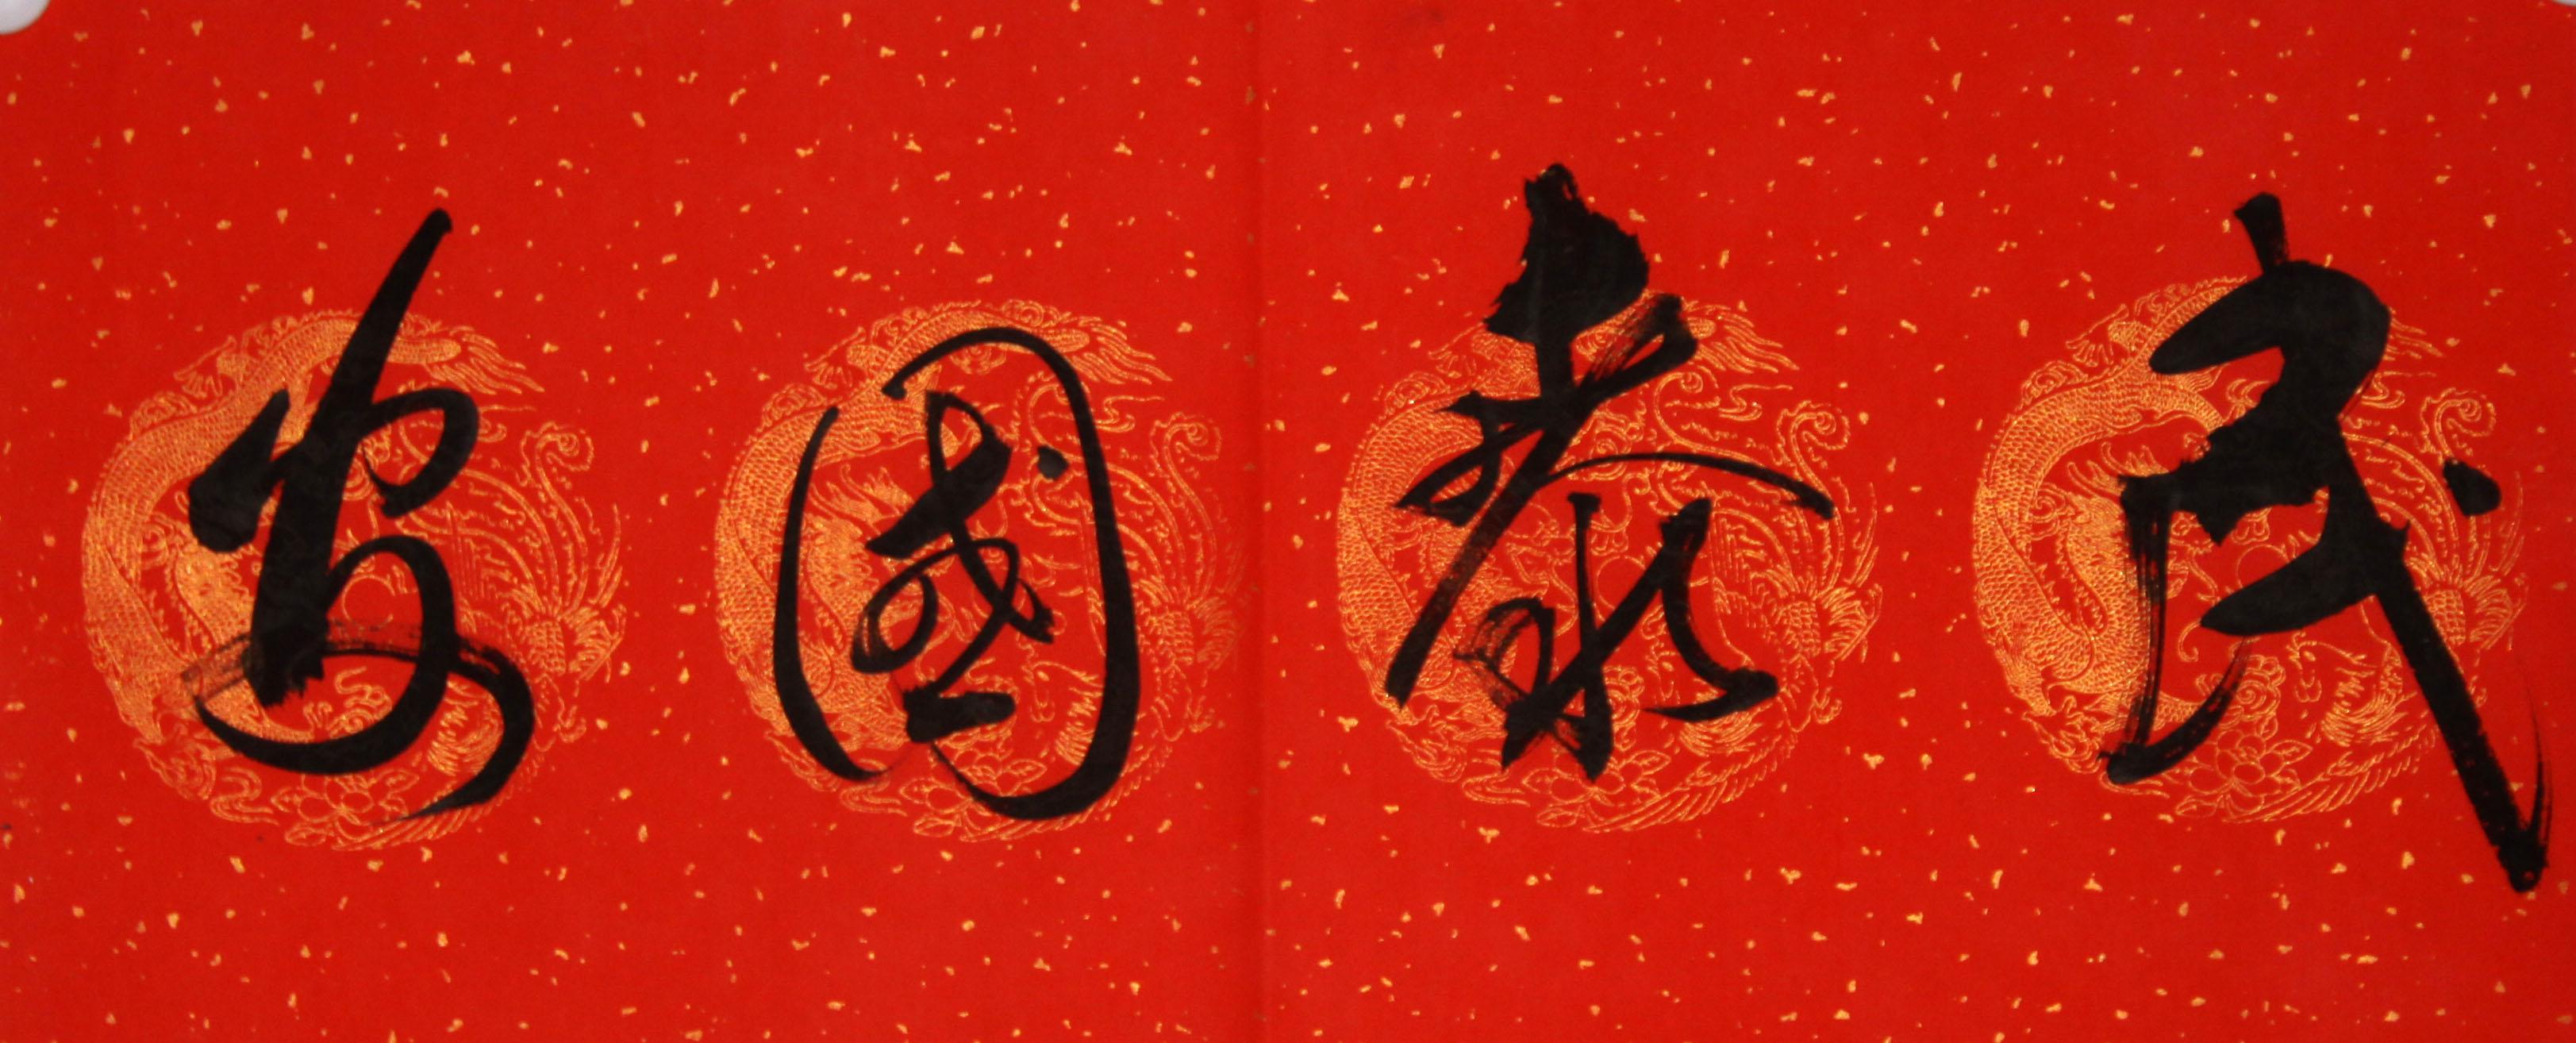 民泰國安